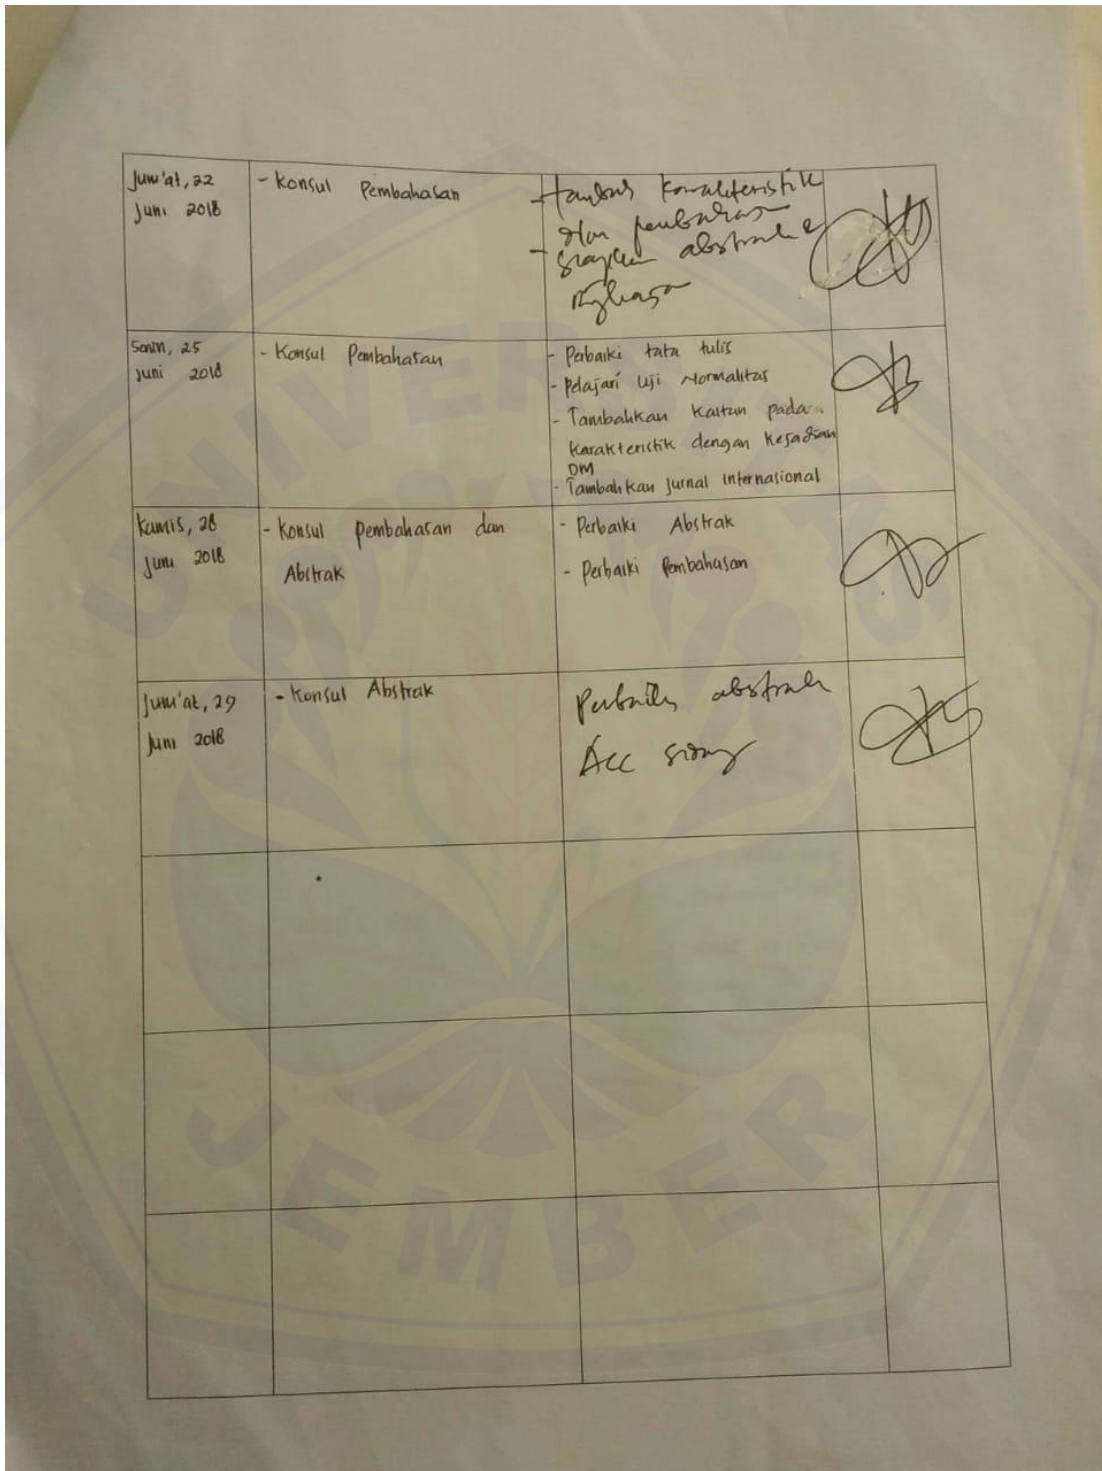 Jum'at, 22
Juni 2018
- Konsul Pembahasan
karakteristik
abstrak
Ringkasan
Senin, 25
Juni 2018
- Konsul Pembahasan
- Perbaiki tata tulis
- Pelajari Uji Normalitas
- Tambahkan Kaitan pada
karakteristik dengan kejadian
DM
- Tambahkan Jurnal Internasional
Kamis, 28
Juni 2018
- Konsul Pembahasan dan
Abstrak
- Perbaiki Abstrak
- Perbaiki Pembahasan
Jum'at, 29
Juni 2018
- Konsul Abstrak
Perbaiki abstrak
Acc sidang
UNIVERSITAS
JEMBER